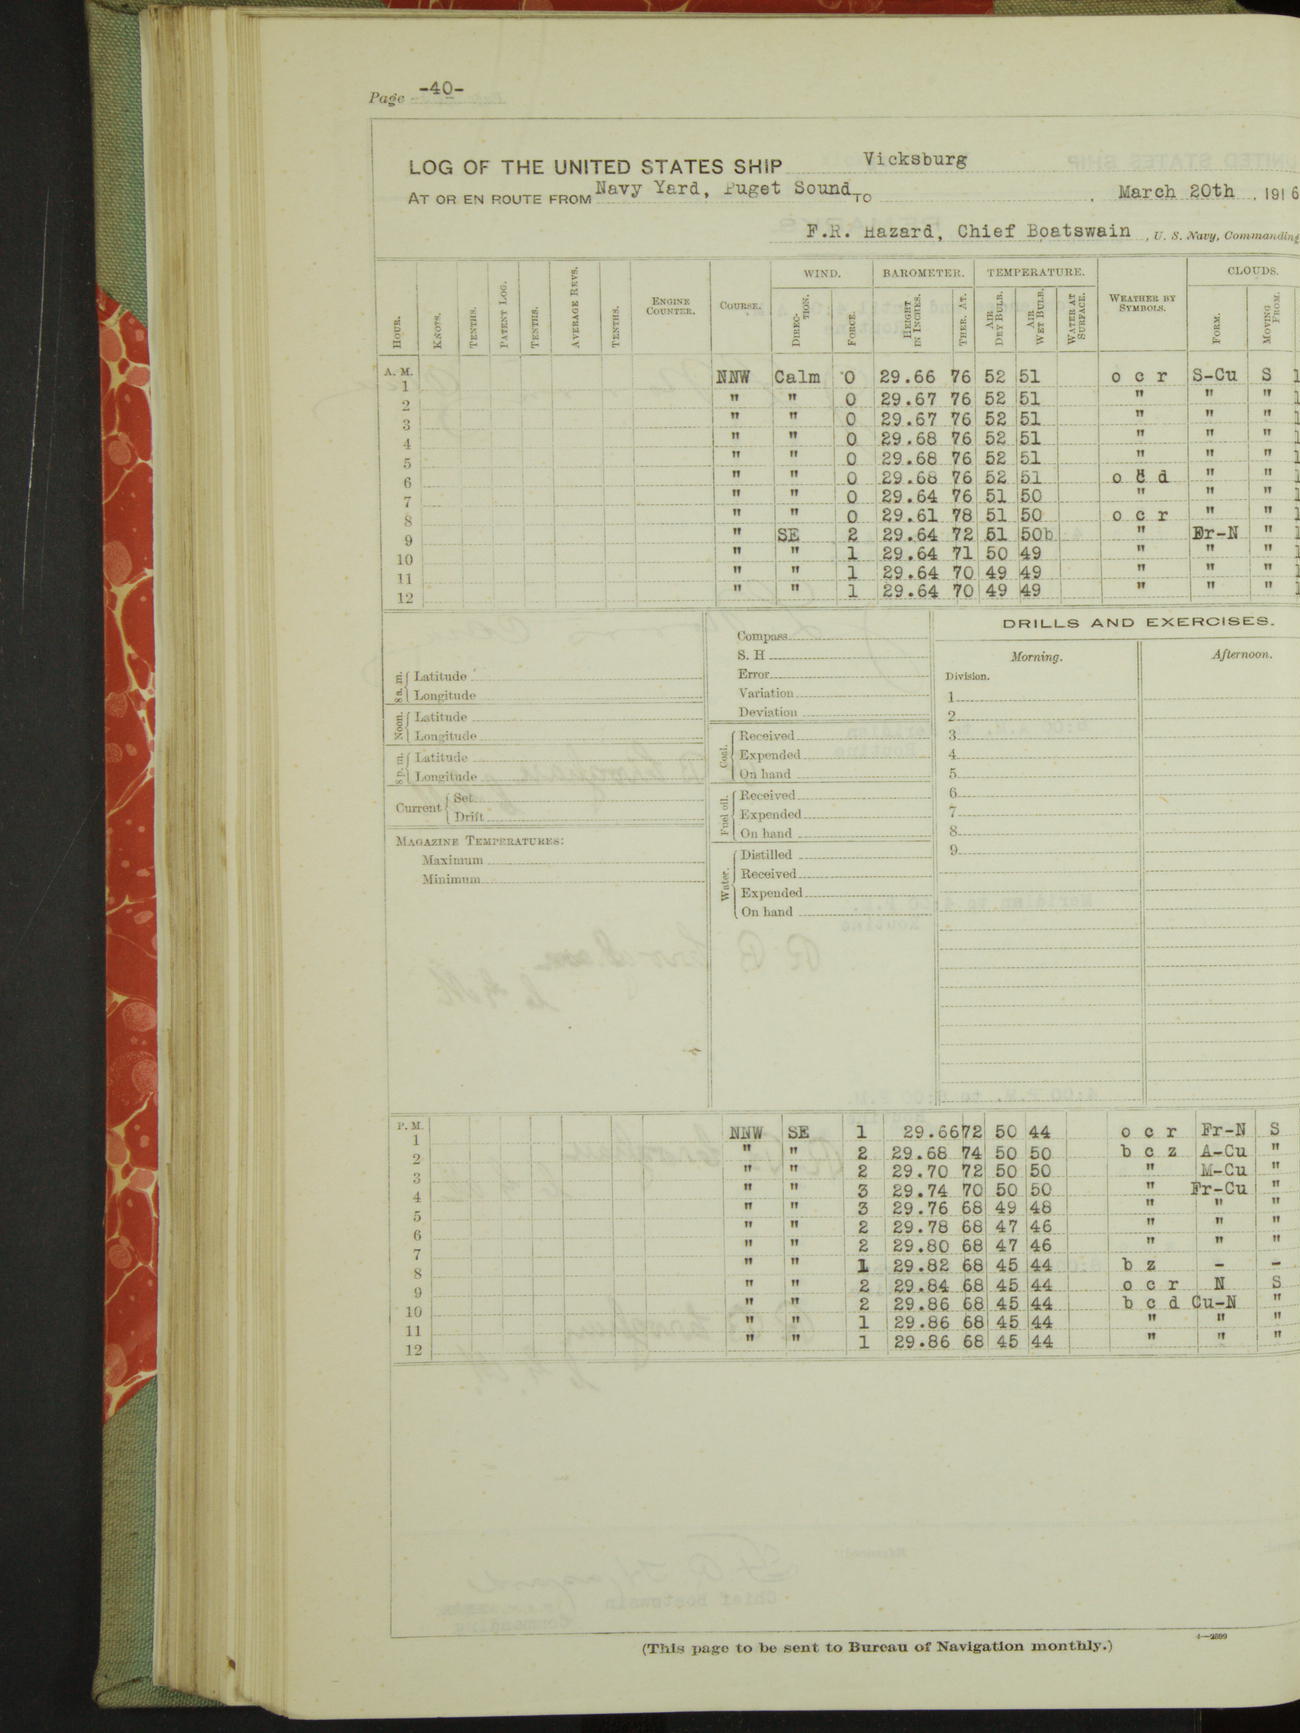 Page -40-
LOG OF THE UNITED STATES SHIP Vicksburg
AT OR EN ROUTE FROM Navy Yard, Puget Sound TO , March 20th , 1916
F.R. Hazard, Chief Boatswain , U. S. Navy, Commanding
WIND. BAROMETER. TEMPERATURE. CLOUDS.
HOUR. KNOTS. TENTHS. PATENT LOG. TENTHS. AVERAGE REVS. TENTHS. ENGINE COUNTER. COURSE. DIREC-TION. FORCE. HEIGHT IN INCHES. THER. AT. AIR DRY BULB. AIR WET BULB. WATER AT SURFACE. WEATHER BY SYMBOLS. FORM. MOVING FROM.
A. M.
1 NNW Calm 0 29.66 76 52 51 o c r S-Cu S 1
2 " " 0 29.67 76 52 51 " " " 1
3 " " 0 29.67 76 52 51 " " " 1
4 " " 0 29.68 76 52 51 " " " 1
5 " " 0 29.68 76 52 51 " " " 1
6 " " 0 29.68 76 52 51 o c d " " 1
7 " " 0 29.64 76 51 50 " " " 1
8 " " 0 29.61 78 51 50 o c r " " 1
9 " SE 2 29.64 72 51 50b " Fr-N " 1
10 " " 1 29.64 71 50 49 " " " 1
11 " " 1 29.64 70 49 49 " " " 1
12 " " 1 29.64 70 49 49 " " " 1
DRILLS AND EXERCISES.
Morning. Afternoon.
Division.
1
2
3
4
5
6
7
8
9
8 a. m. Latitude
Longitude
Noon. Latitude
Longitude
8 p. m. Latitude
Longitude
Current Set
Drift
MAGAZINE TEMPERATURES:
Maximum
Minimum
Compass
S. H
Error
Variation
Deviation
Coal. Received
Expended
On hand
Fuel oil. Received
Expended
On hand
Water. Distilled
Received
Expended
On hand
P. M.
1 NNW SE 1 29.66 72 50 44 o c r Fr-N S
2 " " 2 29.68 74 50 50 b c z A-Cu "
3 " " 2 29.70 72 50 50 " M-Cu "
4 " " 3 29.74 70 50 50 " Fr-Cu "
5 " " 3 29.76 68 49 48 " " "
6 " " 2 29.78 68 47 46 " " "
7 " " 2 29.80 68 47 46 " " "
8 " " 1 29.82 68 45 44 b z - -
9 " " 2 29.84 68 45 44 o c r N S
10 " " 2 29.86 68 45 44 b c d Cu-N "
11 " " 1 29.86 68 45 44 " " "
12 " " 1 29.86 68 45 44 " " "
(This page to be sent to Bureau of Navigation monthly.)
4—2899